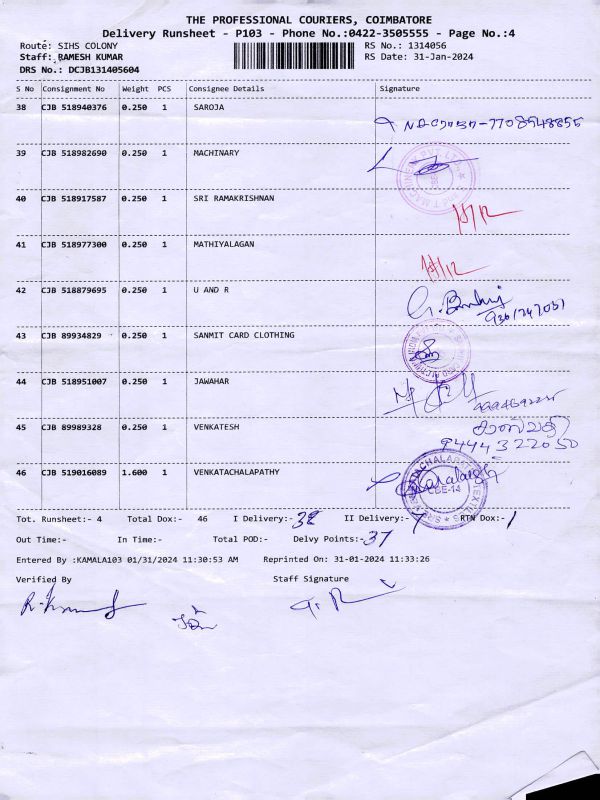 THE PROFESSIONAL COURIERS, COIMBATORE
Delivery Runsheet - P103 - Phone No.:0422-3505555 - Page No.:4
Route: SIHS COLONY RS No.: 1314056
Staff: RAMESH KUMAR RS Date: 31-Jan-2024
DRS No.: DCJB131405604
S No Consignment No Weight PCS Consignee Details Signature
38 CJB 518940376 0.250 1 SAROJA
7708948855
39 CJB 518982690 0.250 1 MACHINARY
40 CJB 518917587 0.250 1 SRI RAMAKRISHNAN
41 CJB 518977300 0.250 1 MATHIYALAGAN
42 CJB 518879695 0.250 1 U AND R
43 CJB 89934829 0.250 1 SANMIT CARD CLOTHING
44 CJB 518951007 0.250 1 JAWAHAR
45 CJB 89989328 0.250 1 VENKATESH
9444322050
46 CJB 519016089 1.600 1 VENKATACHALAPATHY
CBE-14
Tot. Runsheet:- 4 Total Dox:- 46 I Delivery:- 38 II Delivery:- 7 RTN Dox:- 1
Out Time:- In Time:- Total POD:- Delvy Points:- 37
Entered By :KAMALA103 01/31/2024 11:30:53 AM Reprinted On: 31-01-2024 11:33:26
Verified By Staff Signature